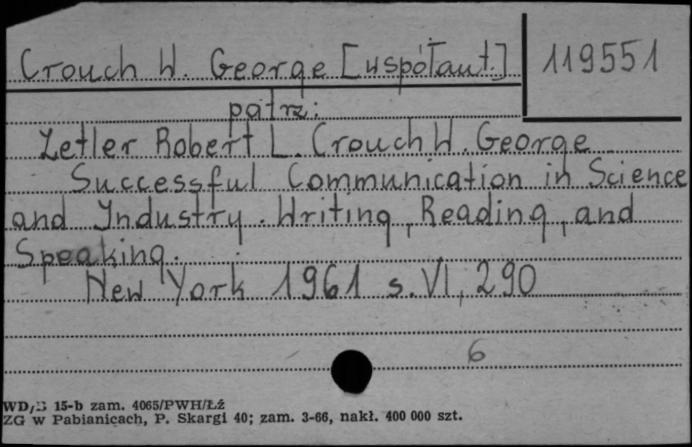 Crouch W. George [współaut.]
119551
patrz:
Zetler Robert L. Crouch W. George
Successful Communication in Science
and Industry. Writing, Reading, and
Speaking.
New York 1961 s. VI, 290
6
15-b zam. 4065/PWH/Łź
ZG w Pabianicach, P. Skargi 40; zam. 3-66, nakł. 400 000 szt.